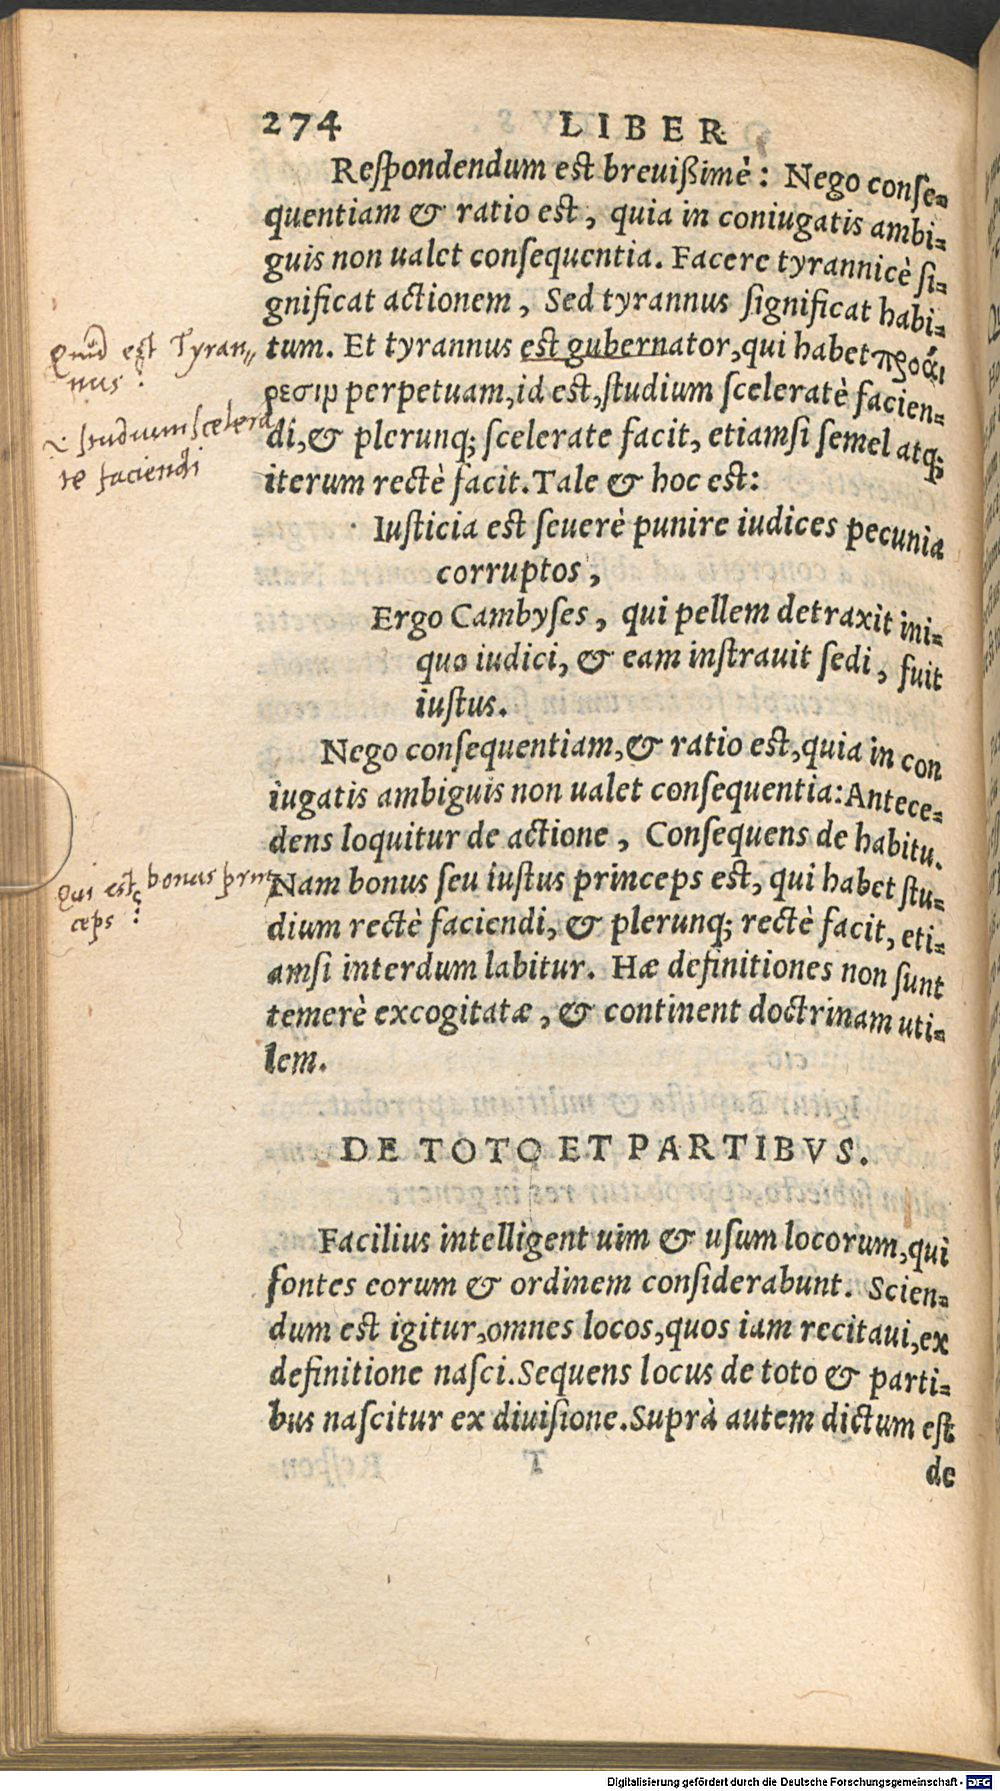 274 LIBER
Reſpondendum eſt breuiſsimè: Nego conſe-
quentiam & ratio eſt, quia in coniugatis ambi-
guis non ualet conſequentia. Facere tyrannicè ſi-
gnificat actionem, Sed tyrannus ſignificat habi-
tum. Et tyrannus eſt gubernator, qui habet προαί
ρεσιμ perpetuam, id eſt, ſtudium ſceleratè facien-
di, & plerunq; ſcelerate facit, etiamſi ſemel atq;
iterum rectè facit. Tale & hoc eſt:
Iuſticia eſt ſeuerè punire iudices pecunia
corruptos,
Ergo Cambyſes, qui pellem detraxit ini-
quo iudici, & eam inſtrauit ſedi, fuit
iuſtus.
Nego conſequentiam, & ratio eſt, quia in con
iugatis ambiguis non ualet conſequentia: Antece-
dens loquitur de actione, Conſequens de habitu.
Nam bonus ſeu iuſtus princeps eſt, qui habet ſtu-
dium rectè faciendi, & plerunq; rectè facit, eti-
amſi interdum labitur. Hæ definitiones non ſunt
temerè excogitatæ, & continent doctrinam uti-
lem.
DE TOTO ET PARTIBVS.
Facilius intelligent uim & uſum locorum, qui
fontes eorum & ordinem conſiderabunt. Scien-
dum eſt igitur, omnes locos, quos iam recitaui, ex
definitione naſci. Sequens locus de toto & parti-
bus naſcitur ex diuiſione. Suprà autem dictum eſt
de
Quid est Tyran=
nus?
studium scelera
te faciendi
Qui est bonus prin
ceps?
Digitalisierung gefördert durch die Deutsche Forschungsgemeinschaft - DFG